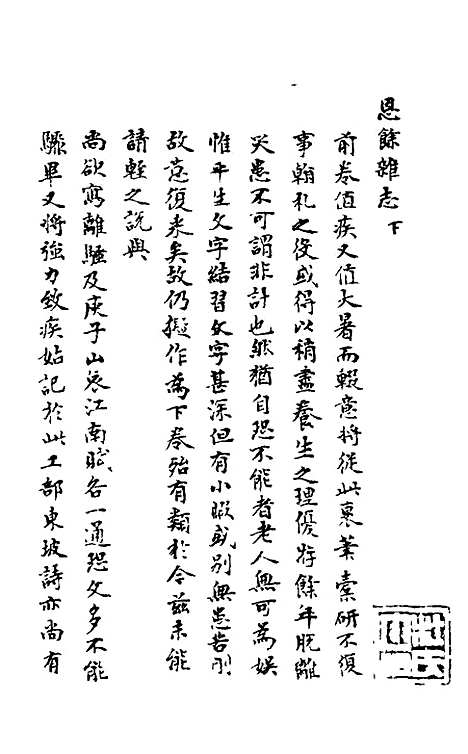 恩餘雜志 下
前卷值疾又值大暑而輟意將從此裹筆橐研不復
事翰札之役或得以稍盡養生之理優存餘年脫離
災患不可謂非計也然猶自恐不能者老人無可為娛
惟平生文字結習文字甚深但有小暇或別無患苦則
故意復来矣故仍擬作為下卷殆有類於今茲未能
請輕之說與
尚欲寫離騷及庾子山哀江南賦各一通恐文多不能
驟畢又將強力致疾姑記於此工部東坡詩亦尚有